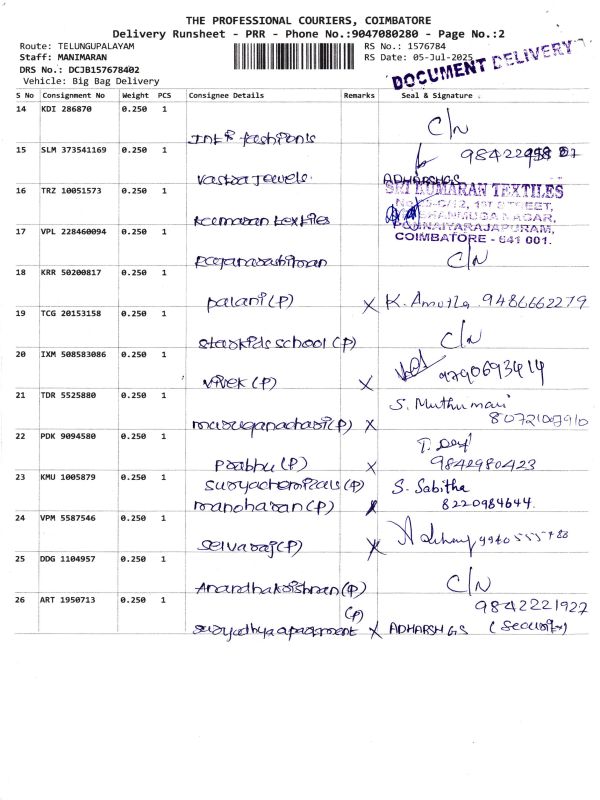 THE PROFESSIONAL COURIERS, COIMBATORE
Delivery Runsheet - PRR - Phone No.:9047080280 - Page No.:2
Route: TELUNGUPALAYAM
RS No.: 1576784
Staff: MANIMARAN
RS Date: 05-Jul-2025
DRS No.: DCJB157678402
Vehicle: Big Bag Delivery
DOCUMENT DELIVERY
S No Consignment No Weight PCS Consignee Details Remarks Seal & Signature
14 KDI 286870 0.250 1
C/N
15 SLM 373541169 0.250 1
Vastra Jewels.
ADHARSH GS
16 TRZ 10051573 0.250 1
Kumaran textiles
SRI KUMARAN TEXTILES
1ST STREET,
SHANMUGA NAGAR,
PONNAIYARAJAPURAM,
COIMBATORE - 641 001.
17 VPL 228460094 0.250 1
C/N
18 KRR 50200817 0.250 1
Palani (P) X K. Amutha 9486662279
19 TCG 20153158 0.250 1
Starkids school (P) C/N
20 IXM 508583086 0.250 1
Vivek (P) X 9790693414
21 TDR 5525880 0.250 1
Muruganachari (P) X S. Muthumari
8072108910
22 PDK 9094580 0.250 1
Prabhu (P) X 9842980423
23 KMU 1005879 0.250 1
Suryachemicals (P) S. Sabitha
Manoharan (P) X 8220984644.
24 VPM 5587546 0.250 1
Selvaraj (P) X
25 DDG 1104957 0.250 1
Anandhakrishnan (P) C/N
26 ART 1950713 0.250 1
9842221927
(P)
Suryudhya apartment X ADHARSH GS (Security)